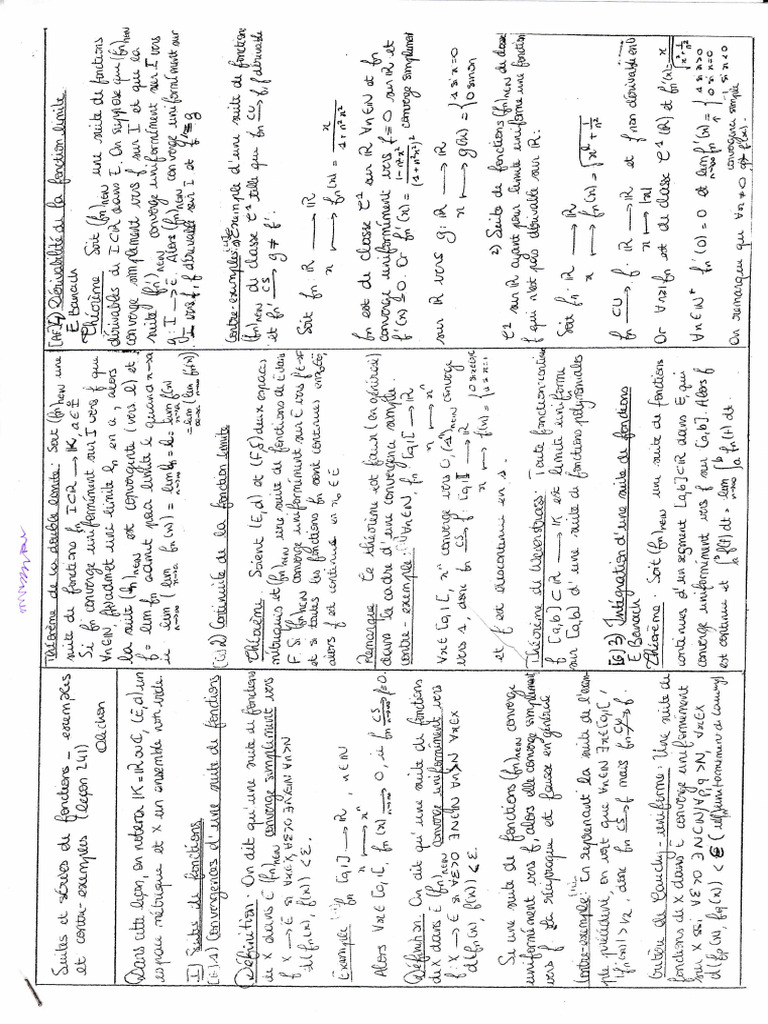 Suites et séries de fonctions - exemples
et contre-exemples (leçon 241)
Dans cette leçon, on notera K = R ou C, (E,d) un
espace métrique et X un ensemble non vide.
I) Suites de fonctions
1) Convergences d'une suite de fonctions
Définition: On dit qu'une suite de fonctions
de X dans E (fn)n∈N converge simplement vers
f: X → E si ∀x∈X, ∀ε>0 ∃N∈N ∀n>N
d(fn(x), f(x)) < ε.
Exemple: fn: [0,1[ → R, n∈N
x ↦ x^n
Alors ∀x∈[0,1[, fn(x) → 0, ie fn CS→ f=0.
Définition: On dit qu'une suite de fonctions
de X dans E (fn)n∈N converge uniformément vers
f: X → E si ∀ε>0 ∃N∈N ∀n>N ∀x∈X
d(fn(x), f(x)) < ε.
Si une suite de fonctions (fn)n∈N converge
uniformément vers f, alors elle converge simplement
vers f. La réciproque est fausse en général
Contre-exemple: En reprenant la suite de l'exem-
ple précédent, on voit que ∀n∈N ∃x∈[0,1[,
|fn(x)| > 1/2, donc fn CS→ f mais fn CU↛ f.
Critère de Cauchy-uniforme: Une suite de
fonctions de X dans E converge uniformément
sur X ssi ∀ε>0 ∃N∈N ∀p,q>N, ∀x∈X
d(fp(x), fq(x)) < ε (uniformément de Cauchy)
Théorème de la double limite: Soit (fn)n∈N une
suite de fonctions fn: I⊂R → K, a∈Ī
Si fn converge uniformément sur I vers f que
∀n∈N, fn admet une limite ln en a, alors
la suite (ln)n∈N est convergente (vers l) et
lim fn admet pour limite l quand x→a
ie lim (lim fn(x)) = lim ln = l = lim f(x)
= lim (lim fn(x))
2) Continuité de la fonction limite
Théorème: Soient (E,d) et (F,δ) deux espaces
métriques et (fn)n∈N une suite de fonctions de E dans
F. Si (fn)n∈N converge uniformément sur E vers f
et si toutes les fonctions fn sont continues en x0∈E,
alors f est continue en x0∈E
Remarque: Ce théorème est faux (en général)
dans le cadre d'une convergence simple.
Contre-exemple: ∀n∈N, fn: [0,1] → R
x ↦ x^n
∀x∈[0,1[, x^n converge vers 0, (1^n)n∈N converge
vers 1, donc fn CS→ f: [0,1] → R
x ↦ f(x) = { 0 sinon 1 si x=1
et f est discontinue en 1.
Théorème de Weierstrass: Toute fonction continue
f: [a,b]⊂R → K est limite uniforme
sur [a,b] d'une suite de fonctions polynomiales
3) Intégration d'une suite de fonctions
E Banach
Théorème: Soit (fn)n∈N une suite de fonctions
continues d'un segment [a,b]⊂R dans E, qui
converge uniformément vers f sur [a,b]. Alors f
est continue et ∫ab f(t) dt = lim ∫ab fn(t) dt.
4) Dérivabilité de la fonction limite
E Banach
Théorème: Soit (fn)n∈N une suite de fonctions
dérivables de I⊂R dans E. On suppose que (fn)n∈N
converge simplement vers f sur I et que la
suite (fn')n∈N converge uniformément sur I vers
g: I → E. Alors (fn)n∈N converge uniformément sur
I vers f, f dérivable sur I et f' = g
Contre-exemples: 1) Exemple d'une suite de fonctions
(fn)n∈N de classe C1 telle que fn CU→ f, f dérivable
et fn' CS→ g ≠ f'.
Soit fn: R → R
x ↦ fn(x) = x/(1+n²x²)
fn est de classe C1 sur R ∀n∈N et fn
converge uniformément vers f=0 sur R et
f'(x)=0. Or fn'(x) = (1-n²x²)/(1+n²x²)² converge simplement
sur R vers g: R → R
x ↦ g(x) = { 1 si x=0 0 sinon
2) Suite de fonctions (fn)n∈N de classe
C1 sur R ayant pour limite uniforme une fonction
f qui n'est pas dérivable sur R:
Soit fn: R → R
x ↦ fn(x) = √(x² + 1/n²)
fn CU→ f: R → R et f non dérivable en 0
x ↦ |x|
Or ∀n≥1 fn est de classe C1(R) et fn'(x) = x/√(x²+1/n²)
∀n∈N* fn'(0) = 0 et lim fn'(x) = { 1 si x>0 0 si x=0 -1 si x<0
convergence simple
On remarque que ∀x≠0